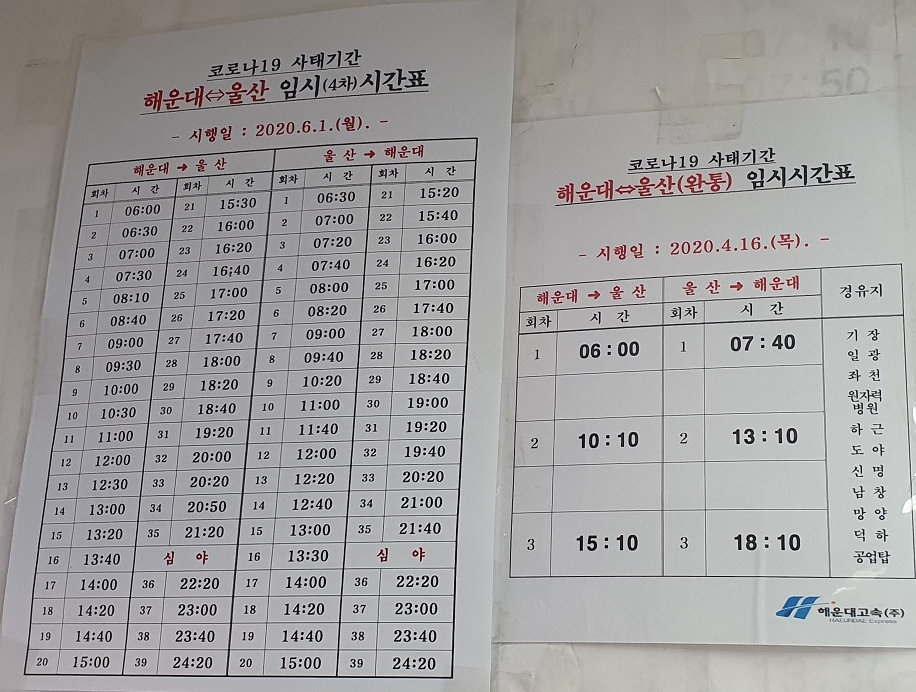 코로나19 사태기간
해운대⇔울산 임시(4차)시간표
- 시행일 : 2020.6.1.(월). -
해운대 → 울 산 울 산 → 해운대
회차 시 간 회차 시 간 회차 시 간 회차 시 간
1 06:00 21 15:30 1 06:30 21 15:20
2 06:30 22 16:00 2 07:00 22 15:40
3 07:00 23 16:20 3 07:20 23 16:00
4 07:30 24 16;40 4 07:40 24 16:20
5 08:10 25 17:00 5 08:00 25 17:00
6 08:40 26 17:20 6 08:20 26 17:40
7 09:00 27 17:40 7 09:00 27 18:00
8 09:30 28 18:00 8 09:40 28 18:20
9 10:00 29 18:20 9 10:20 29 18:40
10 10:30 30 18:40 10 11:00 30 19:00
11 11:00 31 19:20 11 11:40 31 19:20
12 12:00 32 20:00 12 12:00 32 19:40
13 12:30 33 20:20 13 12:20 33 20:20
14 13:00 34 20:50 14 12:40 34 21:00
15 13:20 35 21:20 15 13:00 35 21:40
16 13:40 심 야 16 13:30 심 야
17 14:00 36 22:20 17 14:00 36 22:20
18 14:20 37 23:00 18 14:20 37 23:00
19 14:40 38 23:40 19 14:40 38 23:40
20 15:00 39 24:20 20 15:00 39 24:20
코로나19 사태기간
해운대⇔울산(완통) 임시시간표
- 시행일 : 2020.4.16.(목). -
해운대 → 울 산 울 산 → 해운대 경유지
회차 시 간 회차 시 간
1 06:00 1 07:40
2 10:10 2 13:10
3 15:10 3 18:10
기 장
일 광
좌 천
원자력
병원
하 근
도 야
신 명
남 창
망 양
덕 하
공업탑
해운대고속(주)
HAEUNDAE Express
50